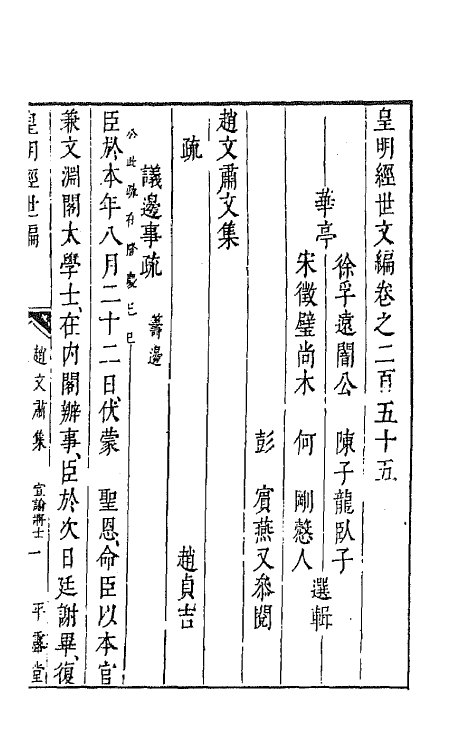 皇明經世文編卷之二百五十五
華亭
徐孚遠闇公　陳子龍臥子
宋徵璧尚木　何　剛慤人
選輯
彭　賓燕又叅閱
趙文肅文集　趙貞吉
疏
議邊事疏　籌邊
公此疏有
臣於本年八月二十二日、伏蒙　聖恩、命臣以本官
兼文淵閣大學士、在內閣辦事、臣於次日廷謝畢、復
皇明經世編　趙文肅集　宣諭將士　一　平露堂